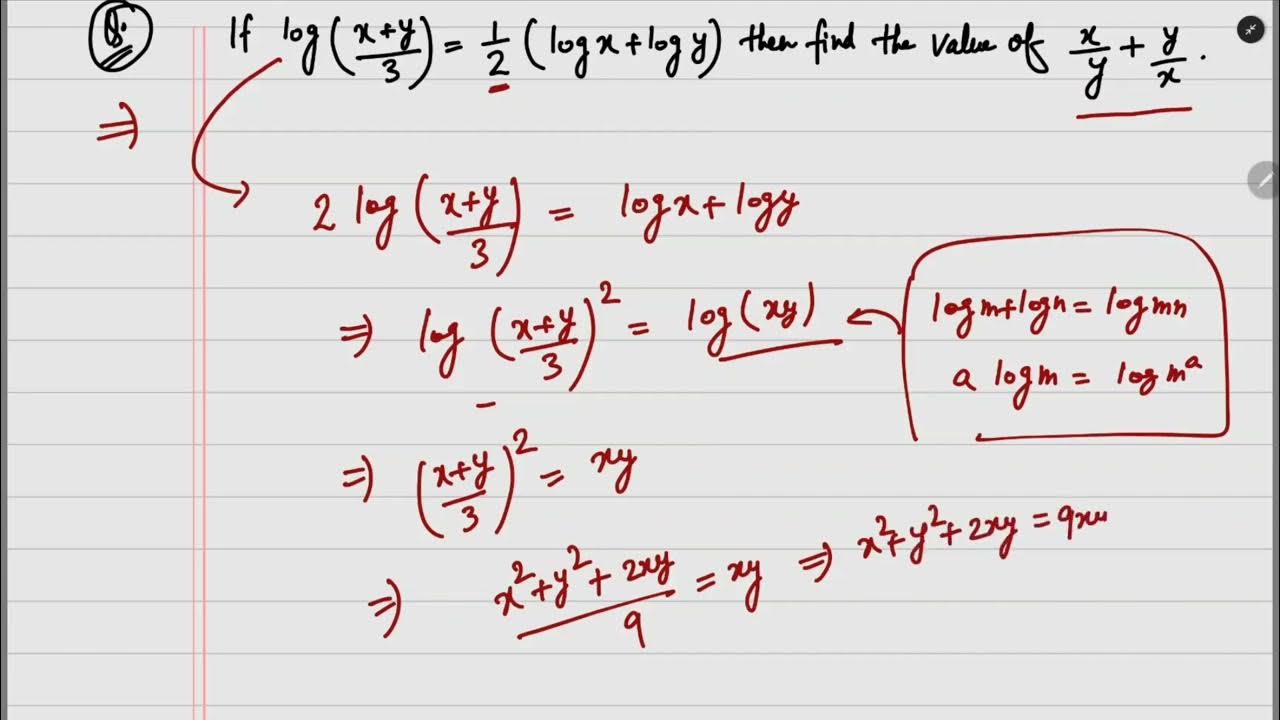 Q. If log((x+y)/3) = 1/2 (log x + log y) then find the value of x/y + y/x .
⇒
2 log((x+y)/3) = log x + log y
⇒ log((x+y)/3)² = log(xy)
log m + log n = log mn
a log m = log mᵃ
⇒ ((x+y)/3)² = xy
⇒ (x² + y² + 2xy)/9 = xy ⇒ x² + y² + 2xy = 9xy